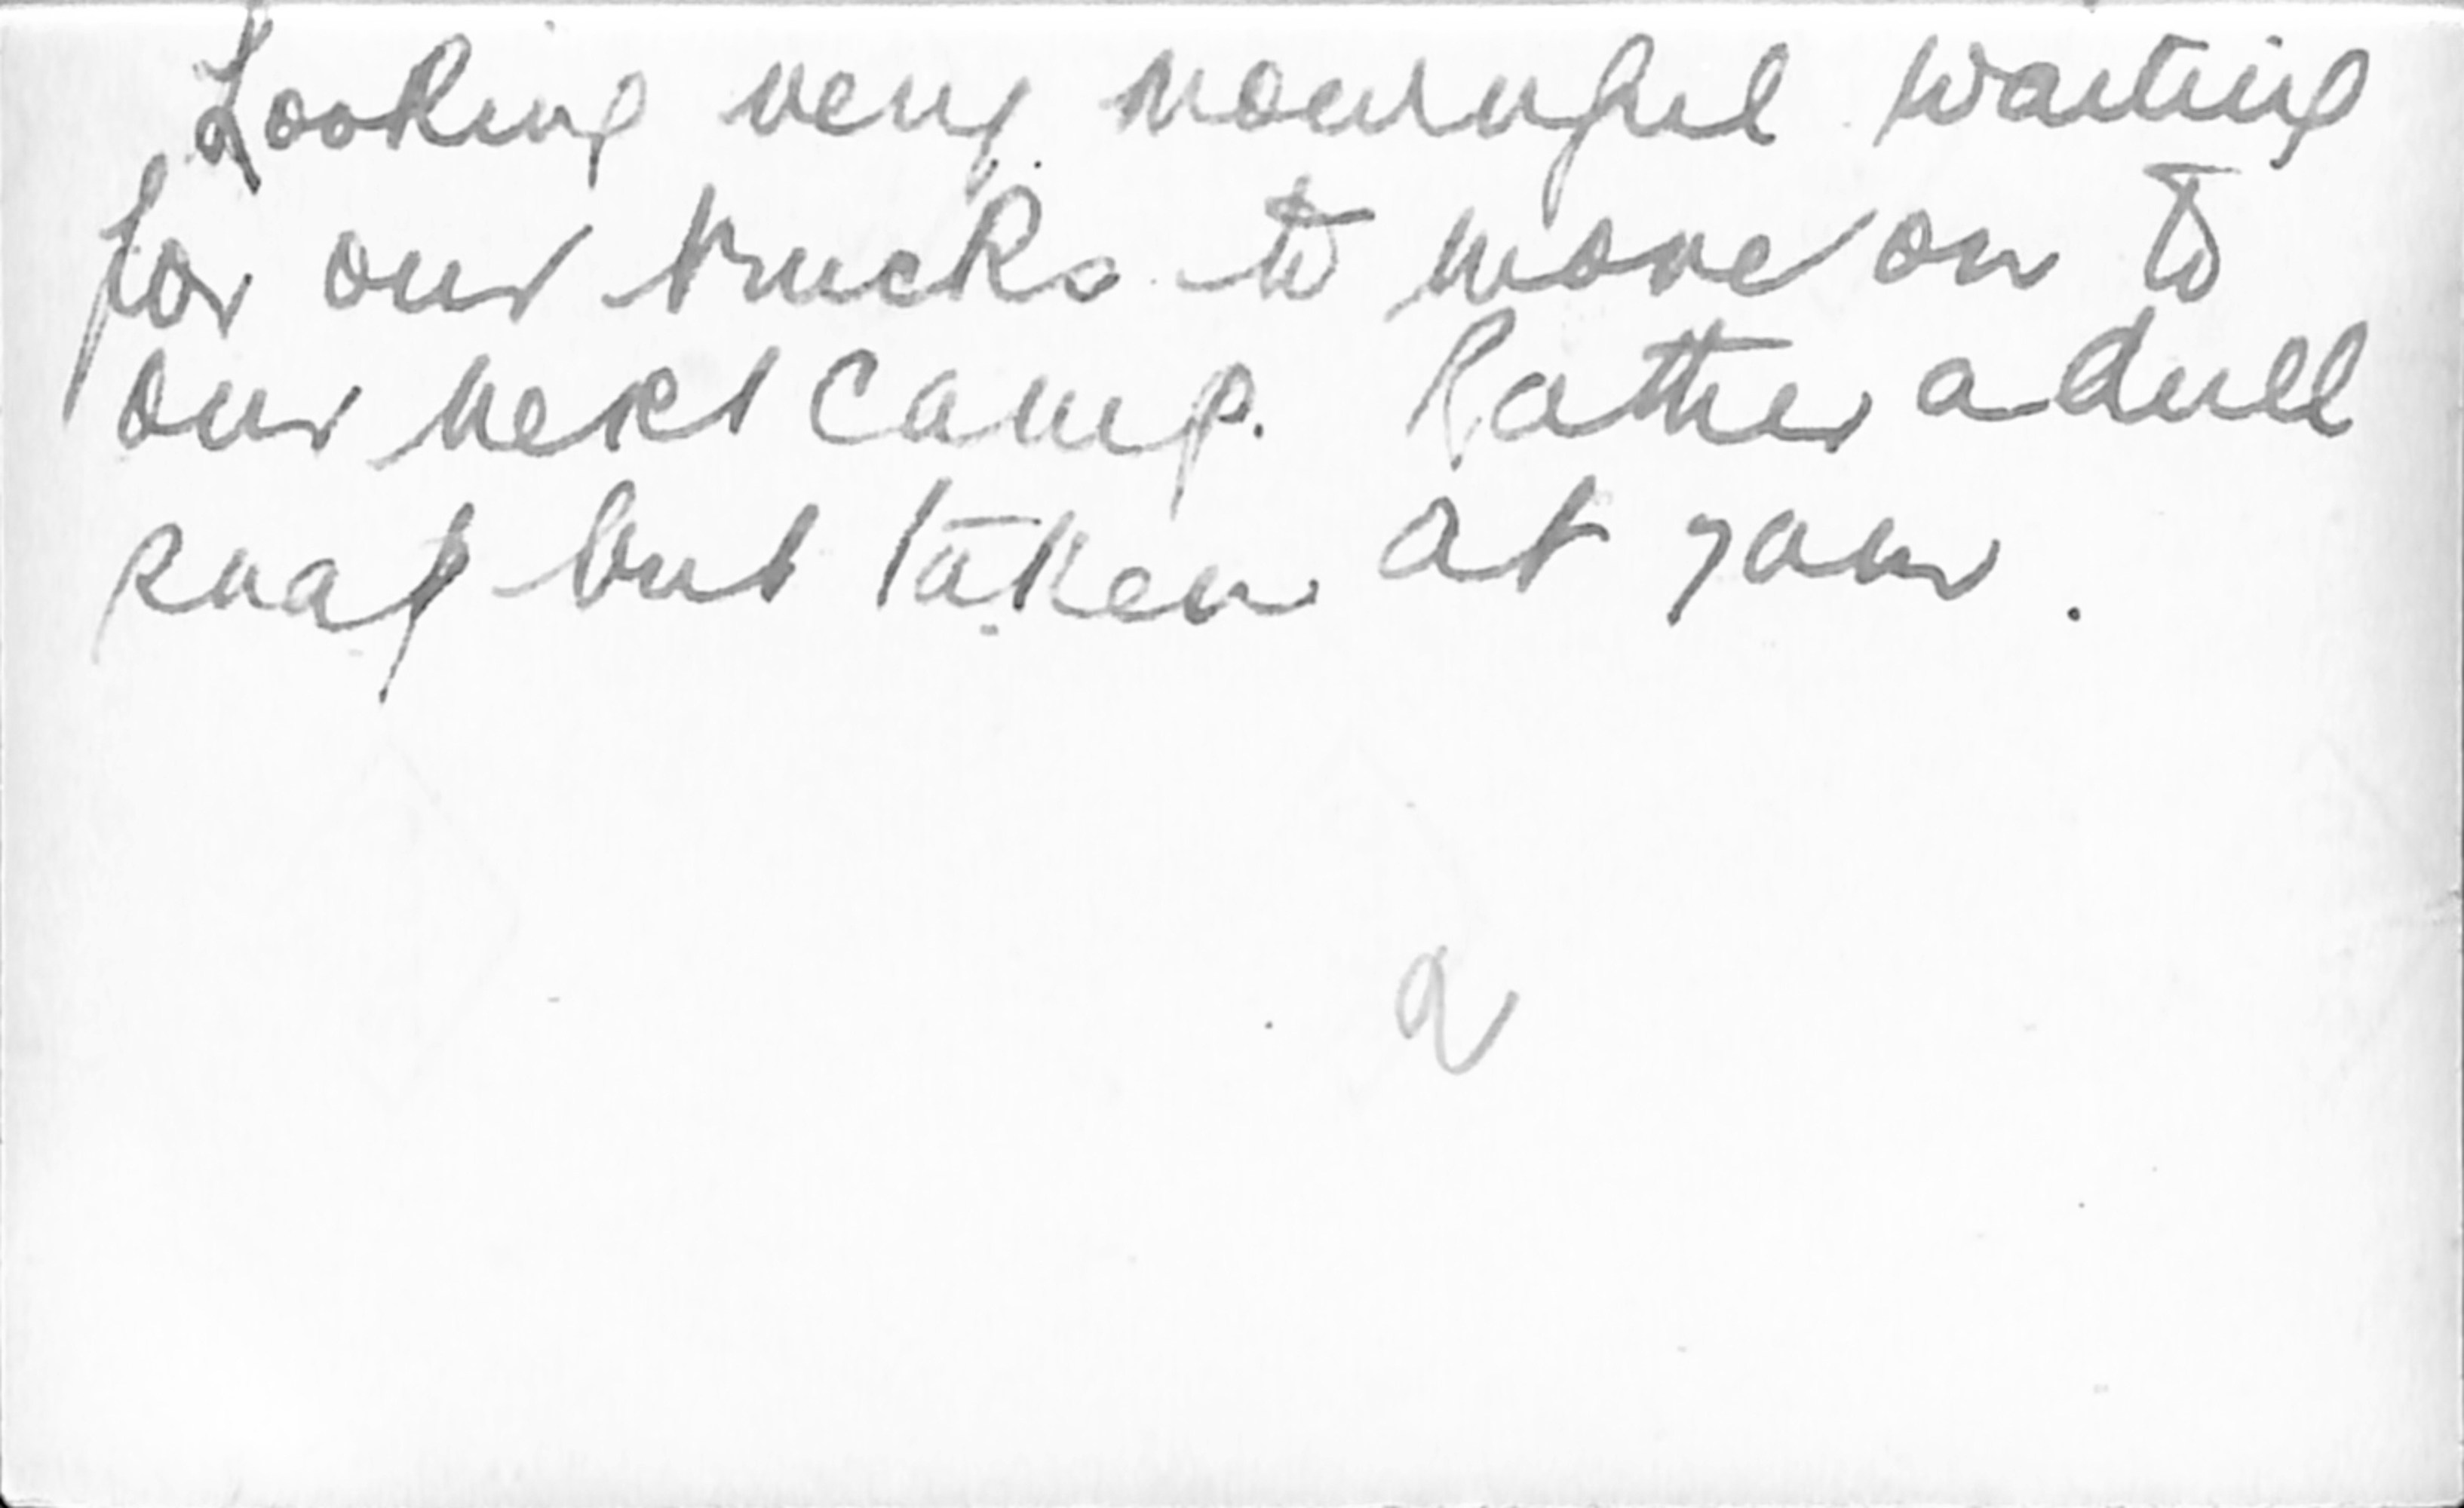 Looking very mournful waiting
for our trucks to move on to
our next camp. Rather a dull
snap but taken at 7am.